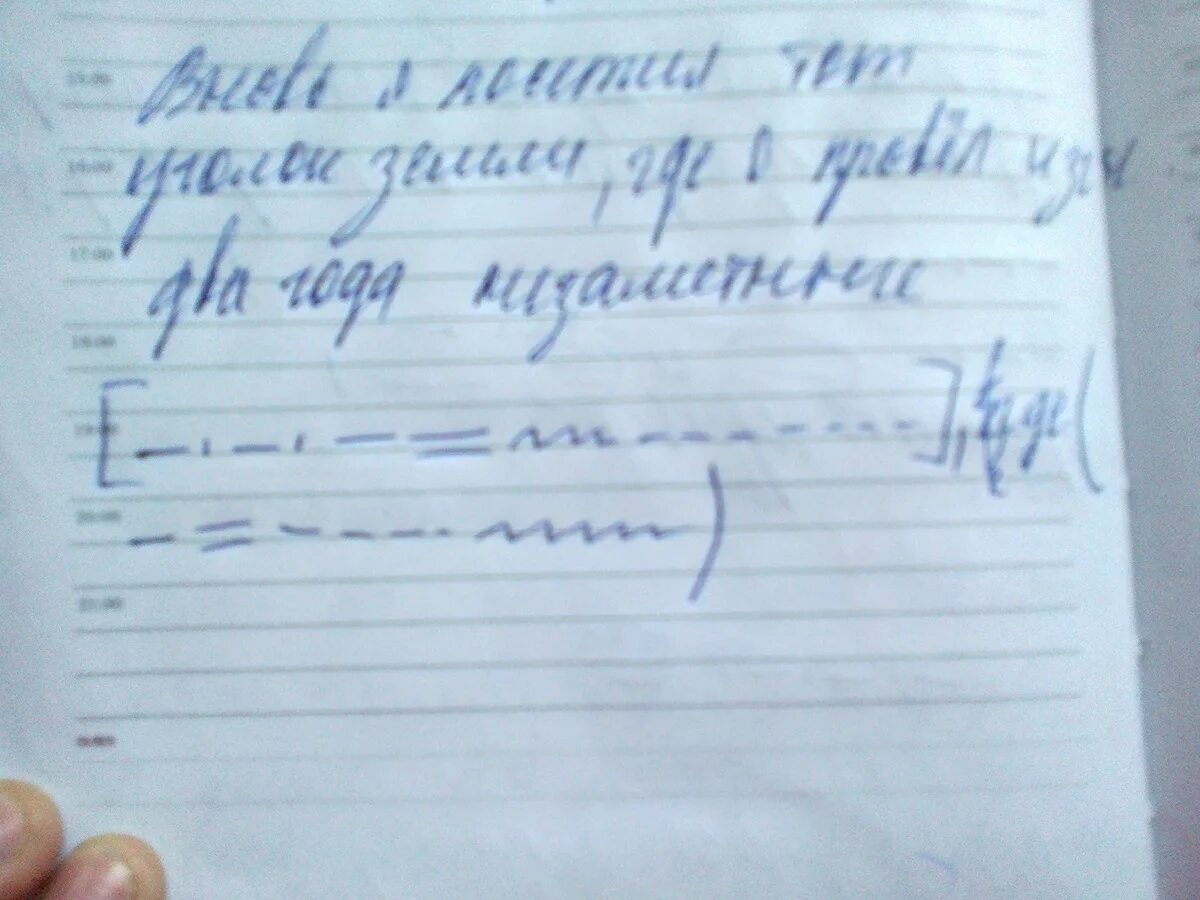 15:00
Вновь я посетил тот
16:00
уголок земли, где я провёл изгн
17:00
два года незаметных
18:00
19:00
], где (
20:00
)
21:00